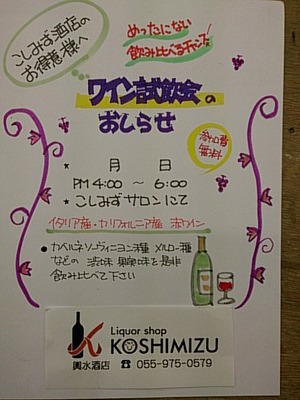 こしみず酒店の
お得意様へ
めったにない
飲み比べるチャンス!
ワイン試飲会の
おしらせ
参加費
無料
* 月 日
PM 4:00 ~ 6:00
* こしみずサロンにて
イタリア産・カリフォルニア産 赤ワイン
● カベルネソーヴィニヨン種 メルロー種
などの 渋味 果実味を是非
飲み比べて下さい
Liquor shop
KOSHIMIZU
輿水酒店 ☎ 055-975-0579